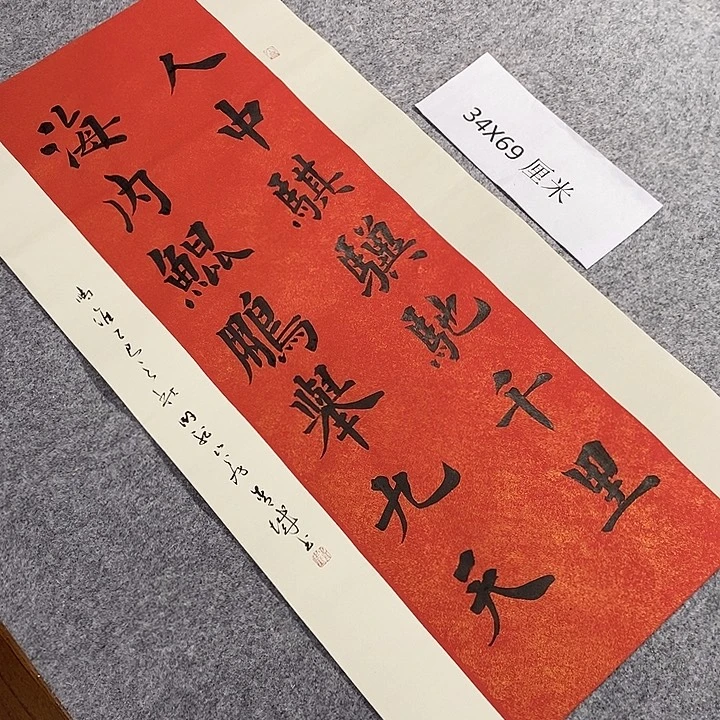 人中騏驥馳千里
海内鯤鵬舉九天
時維乙巳之
34X69 厘米